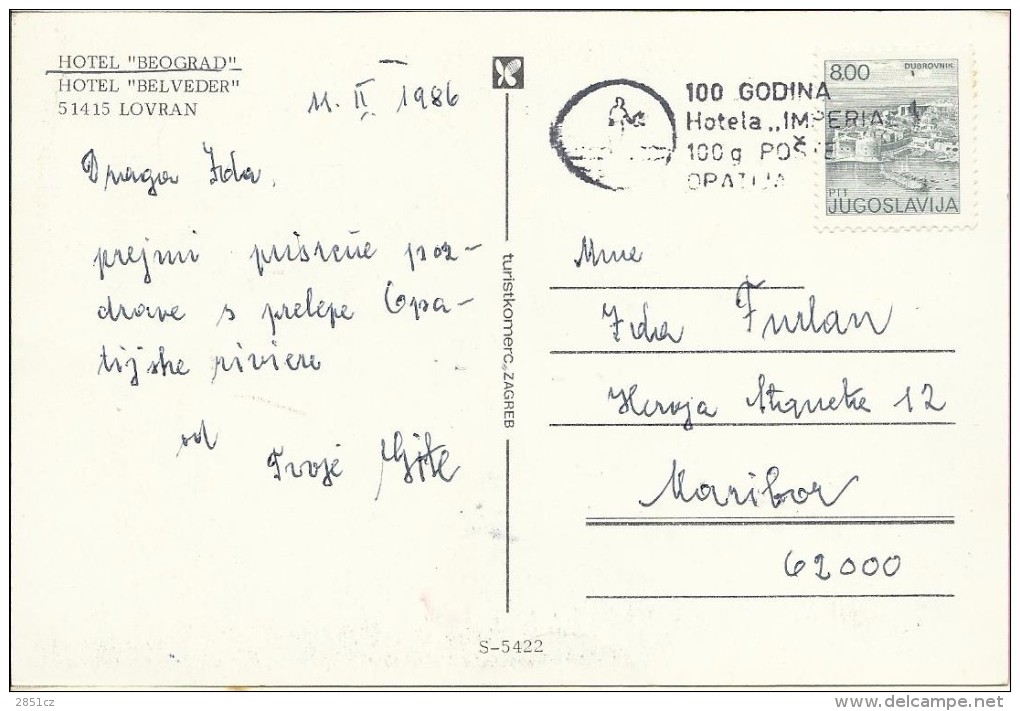 HOTEL "BEOGRAD"
HOTEL "BELVEDER"
51415 LOVRAN
11. II 1986
Draga Ida,
prejmi prisrčne poz-
drave s prelepe Opa-
tijske riviere
od
Tvoje Gite
turistkomerc, ZAGREB
S-5422
100 GODINA
Hotela „IMPERIAL
100 g POŠTE
OPATIJA
8.00 DUBROVNIK
PTT
JUGOSLAVIJA
Ida Furlan
Heroja 12
Maribor
62000
2851cz
www.delcampe.net